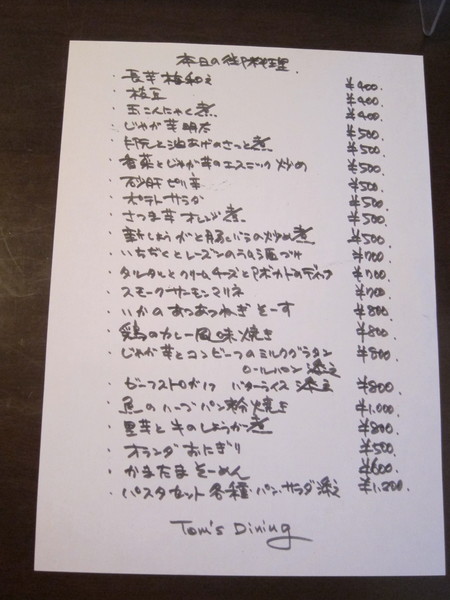 本日の御料理.
・長芋梅和え ¥400.
・枝豆 ¥400.
・玉こんにゃく煮. ¥400.
・じゃが芋明太 ¥500.
・と油あげのさっと煮. ¥500.
・香菜とじゃが芋のエスニック炒め ¥500.
・砂肝ピリ辛 ¥500.
・ポテトサラダ ¥500.
・さつま芋オレンジ煮. ¥500.
・新しょうがと豚バラの炒め煮 ¥500.
・いちぢくとレーズンのラム酒づけ ¥700.
・タルタルとクリームチーズとアボカドのディップ ¥700.
・スモークサーモンマリネ ¥700.
・いかのあつあつねぎそーす ¥800.
・鶏のカレー風味焼き ¥800.
・じゃが芋とコンビーフのミルクグラタン ¥800.
ロールパン添え
・ビーフストロガノフ バターライス添え ¥800.
・魚のハーブパン粉焼き ¥1,000.
・里芋と牛のしょうが煮 ¥800.
・オランダおにぎり ¥500.
・かまたまそーめん ¥600.
・パスタセット各種・パン.サラダ添え ¥1,200.
Tom's Dining